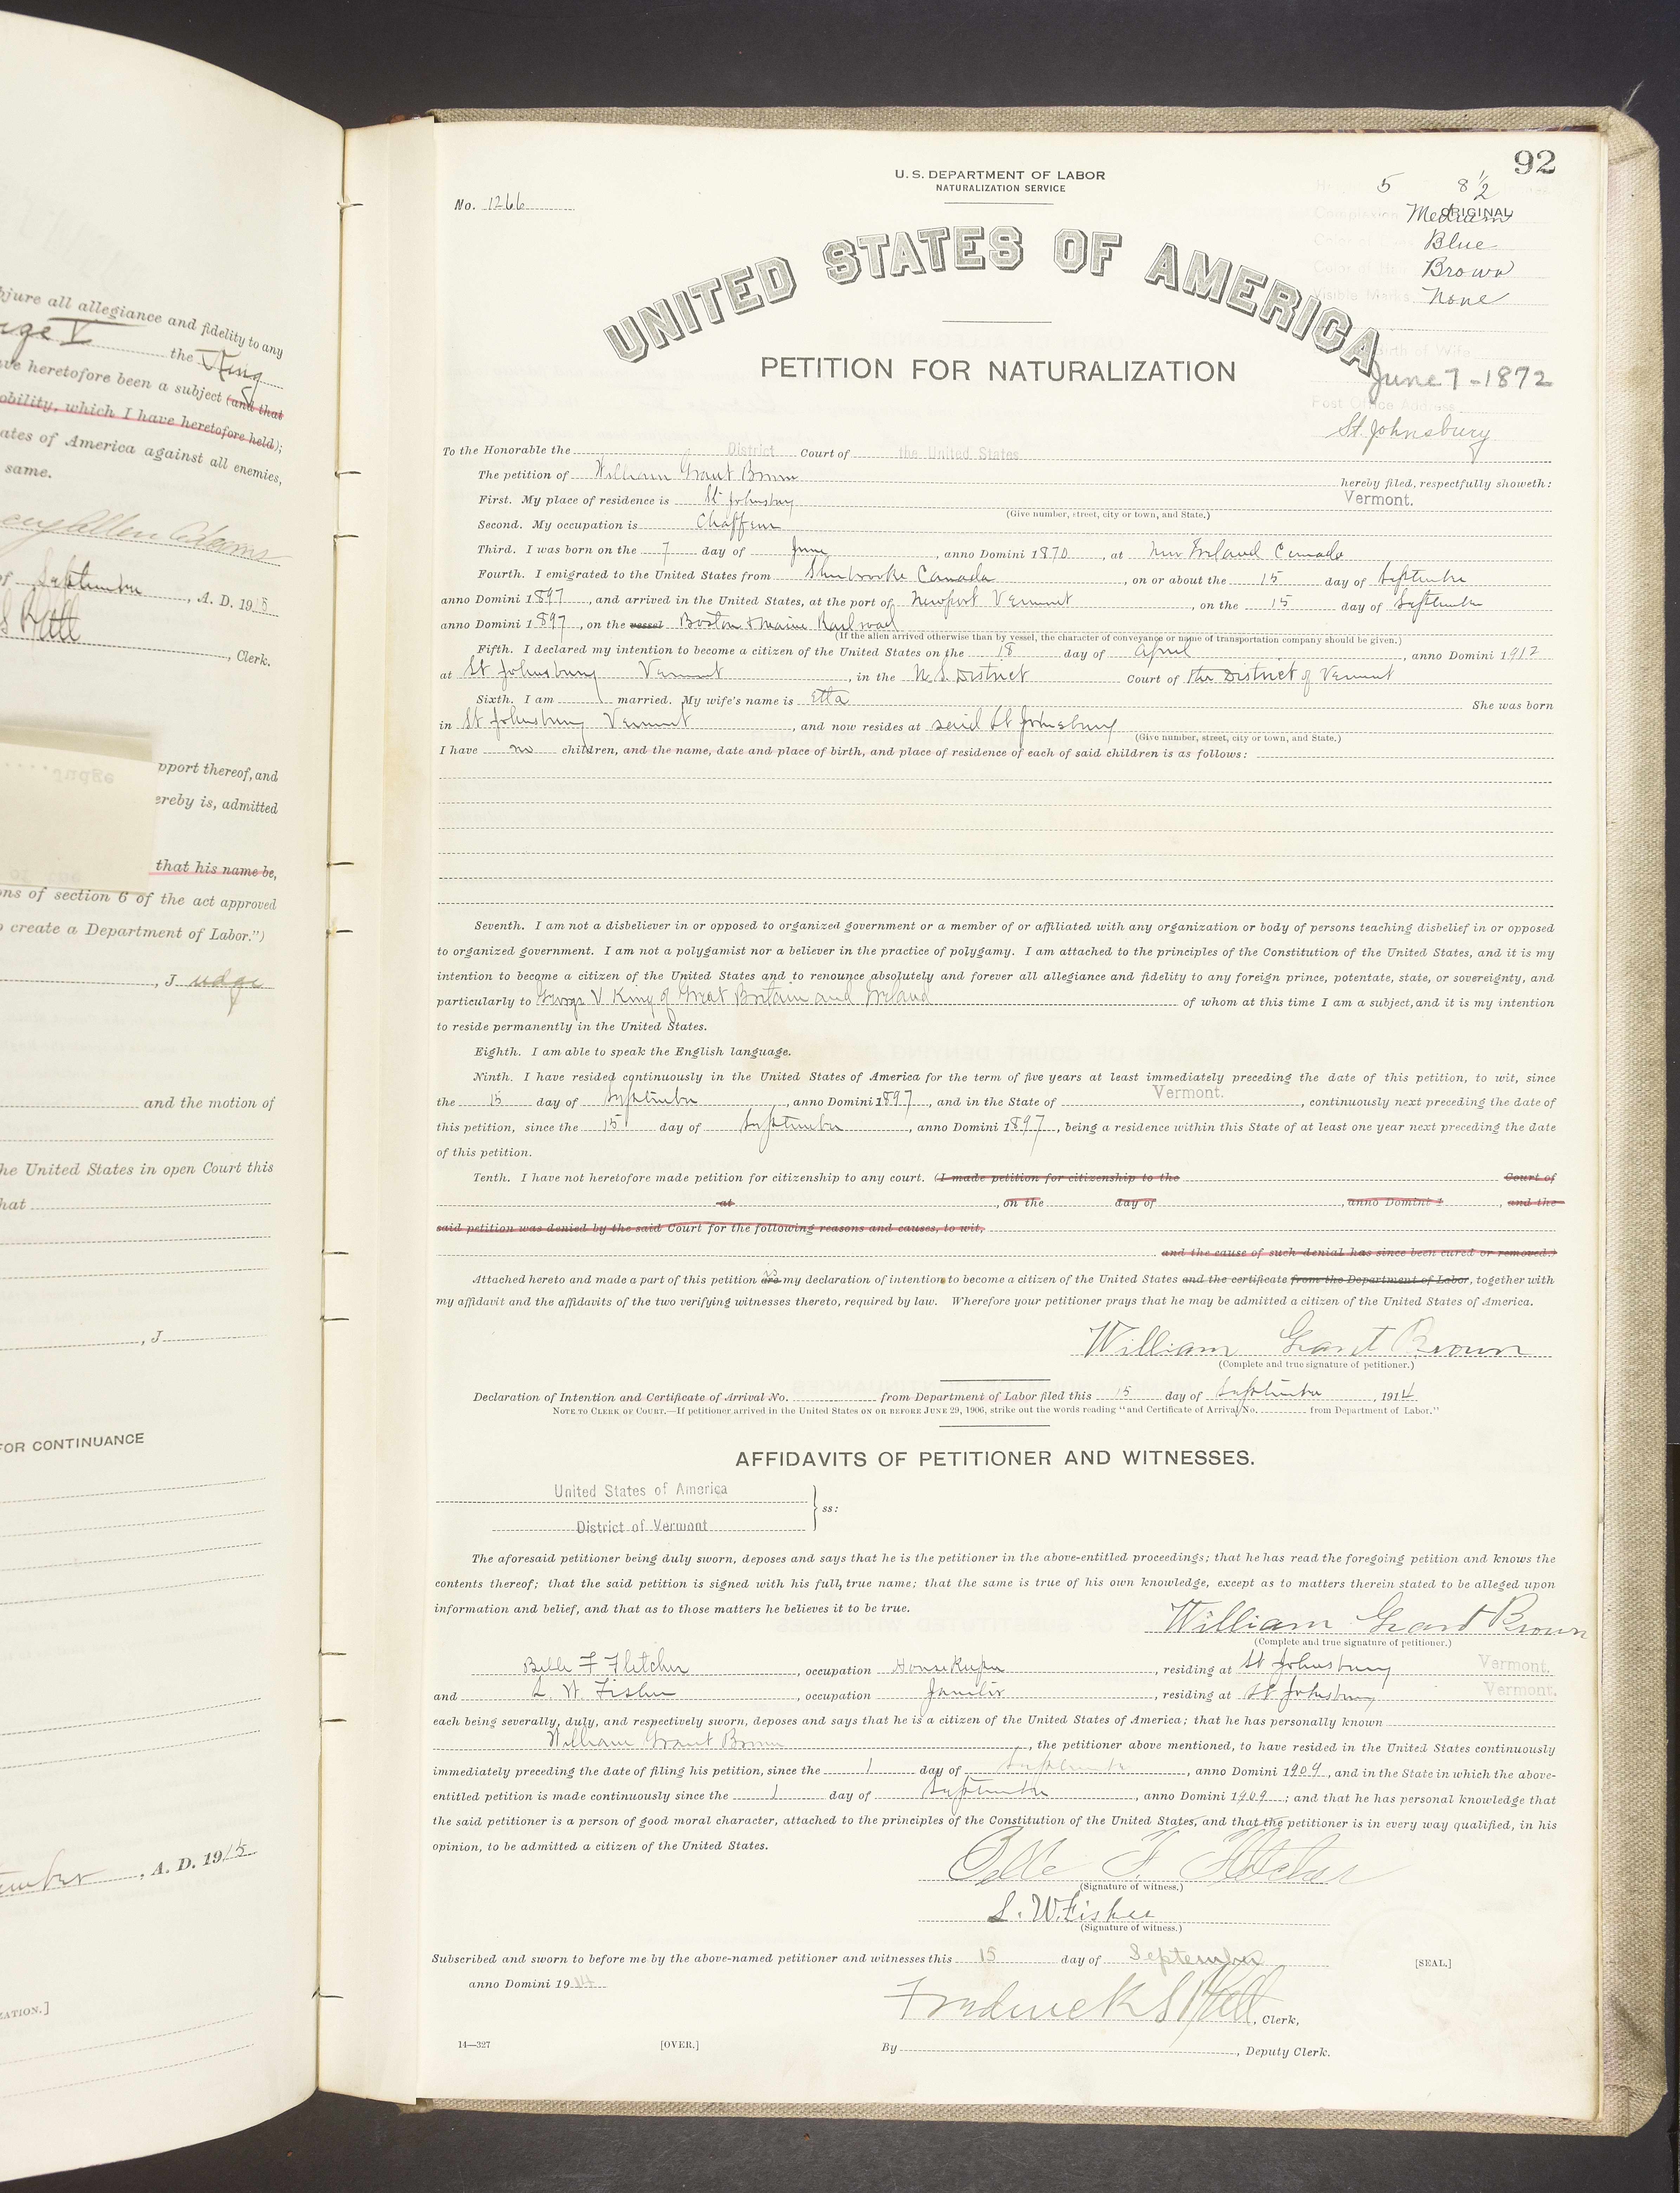 bjure all allegiance and fidelity to any
rge V the King
ve heretofore been a subject (and that
obility, which I have heretofore held);
ates of America against all enemies,
same.
Allen Adams
of September , A. D. 1915
, Clerk.
pport thereof, and
ereby is, admitted
that his name be,
ons of section 6 of the act approved
o create a Department of Labor.")
, J udge
and the motion of
he United States in open Court this
hat
, J
FOR CONTINUANCE
, A. D. 1915
ZATION.]
92
U. S. DEPARTMENT OF LABOR
NATURALIZATION SERVICE
No. 1266
ORIGINAL
5 8 1/2
Complexion Medium
Blue
Brown
Visible Marks None
UNITED STATES OF AMERICA
PETITION FOR NATURALIZATION
Birth of Wife
June 7 - 1872
Post Office Address
St. Johnsbury
To the Honorable the District Court of the United States
The petition of William Grant Brown hereby filed, respectfully showeth:
First. My place of residence is St Johnsbury Vermont.
(Give number, street, city or town, and State.)
Second. My occupation is Chaffeur
Third. I was born on the 7 day of June , anno Domini 1870 , at New Ireland Canada
Fourth. I emigrated to the United States from Sherbrooke Canada , on or about the 15 day of September
anno Domini 1897 , and arrived in the United States, at the port of Newport Vermont , on the 15 day of September
anno Domini 1897 , on the vessel Boston & Maine Railroad
(If the alien arrived otherwise than by vessel, the character of conveyance or name of transportation company should be given.)
Fifth. I declared my intention to become a citizen of the United States on the 18 day of April , anno Domini 1912
at St Johnsbury Vermont , in the U.S. District Court of the District of Vermont
Sixth. I am married. My wife's name is Etta She was born
in St Johnsbury Vermont , and now resides at said St Johnsbury
(Give number, street, city or town, and State.)
I have no children, and the name, date and place of birth, and place of residence of each of said children is as follows:
Seventh. I am not a disbeliever in or opposed to organized government or a member of or affiliated with any organization or body of persons teaching disbelief in or opposed
to organized government. I am not a polygamist nor a believer in the practice of polygamy. I am attached to the principles of the Constitution of the United States, and it is my
intention to become a citizen of the United States and to renounce absolutely and forever all allegiance and fidelity to any foreign prince, potentate, state, or sovereignty, and
particularly to George V King of Great Britain and Ireland of whom at this time I am a subject, and it is my intention
to reside permanently in the United States.
Eighth. I am able to speak the English language.
Ninth. I have resided continuously in the United States of America for the term of five years at least immediately preceding the date of this petition, to wit, since
the 15 day of September , anno Domini 1897 , and in the State of Vermont. , continuously next preceding the date of
this petition, since the 15 day of September , anno Domini 1897 , being a residence within this State of at least one year next preceding the date
of this petition.
Tenth. I have not heretofore made petition for citizenship to any court. (I made petition for citizenship to the Court of
at , on the day of , anno Domini 1 , and the
said petition was denied by the said Court for the following reasons and causes, to wit,
and the cause of such denial has since been cured or removed.)
Attached hereto and made a part of this petition are is my declaration of intention to become a citizen of the United States and the certificate from the Department of Labor, together with
my affidavit and the affidavits of the two verifying witnesses thereto, required by law. Wherefore your petitioner prays that he may be admitted a citizen of the United States of America.
William Grant Brown
(Complete and true signature of petitioner.)
Declaration of Intention and Certificate of Arrival No. from Department of Labor filed this 15 day of September , 1914
NOTE TO CLERK OF COURT.—If petitioner arrived in the United States ON OR BEFORE JUNE 29, 1906, strike out the words reading "and Certificate of Arrival No. from Department of Labor."
AFFIDAVITS OF PETITIONER AND WITNESSES.
United States of America
ss:
District of Vermont
The aforesaid petitioner being duly sworn, deposes and says that he is the petitioner in the above-entitled proceedings; that he has read the foregoing petition and knows the
contents thereof; that the said petition is signed with his full, true name; that the same is true of his own knowledge, except as to matters therein stated to be alleged upon
information and belief, and that as to those matters he believes it to be true.
William Grant Brown
(Complete and true signature of petitioner.)
Belle F Fletcher , occupation Housekeeper , residing at St Johnsbury Vermont.
and L. W. Fisher , occupation Janitor , residing at St Johnsbury Vermont.
each being severally, duly, and respectively sworn, deposes and says that he is a citizen of the United States of America; that he has personally known
William Grant Brown , the petitioner above mentioned, to have resided in the United States continuously
immediately preceding the date of filing his petition, since the 1 day of September , anno Domini 1909 , and in the State in which the above-
entitled petition is made continuously since the 1 day of September , anno Domini 1909 ; and that he has personal knowledge that
the said petitioner is a person of good moral character, attached to the principles of the Constitution of the United States, and that the petitioner is in every way qualified, in his
opinion, to be admitted a citizen of the United States.
Belle F Fletcher
(Signature of witness.)
L. W. Fisher
(Signature of witness.)
Subscribed and sworn to before me by the above-named petitioner and witnesses this 15 day of September [SEAL.]
anno Domini 1914
Frederick S Platt , Clerk,
14—327 [OVER.] By , Deputy Clerk.